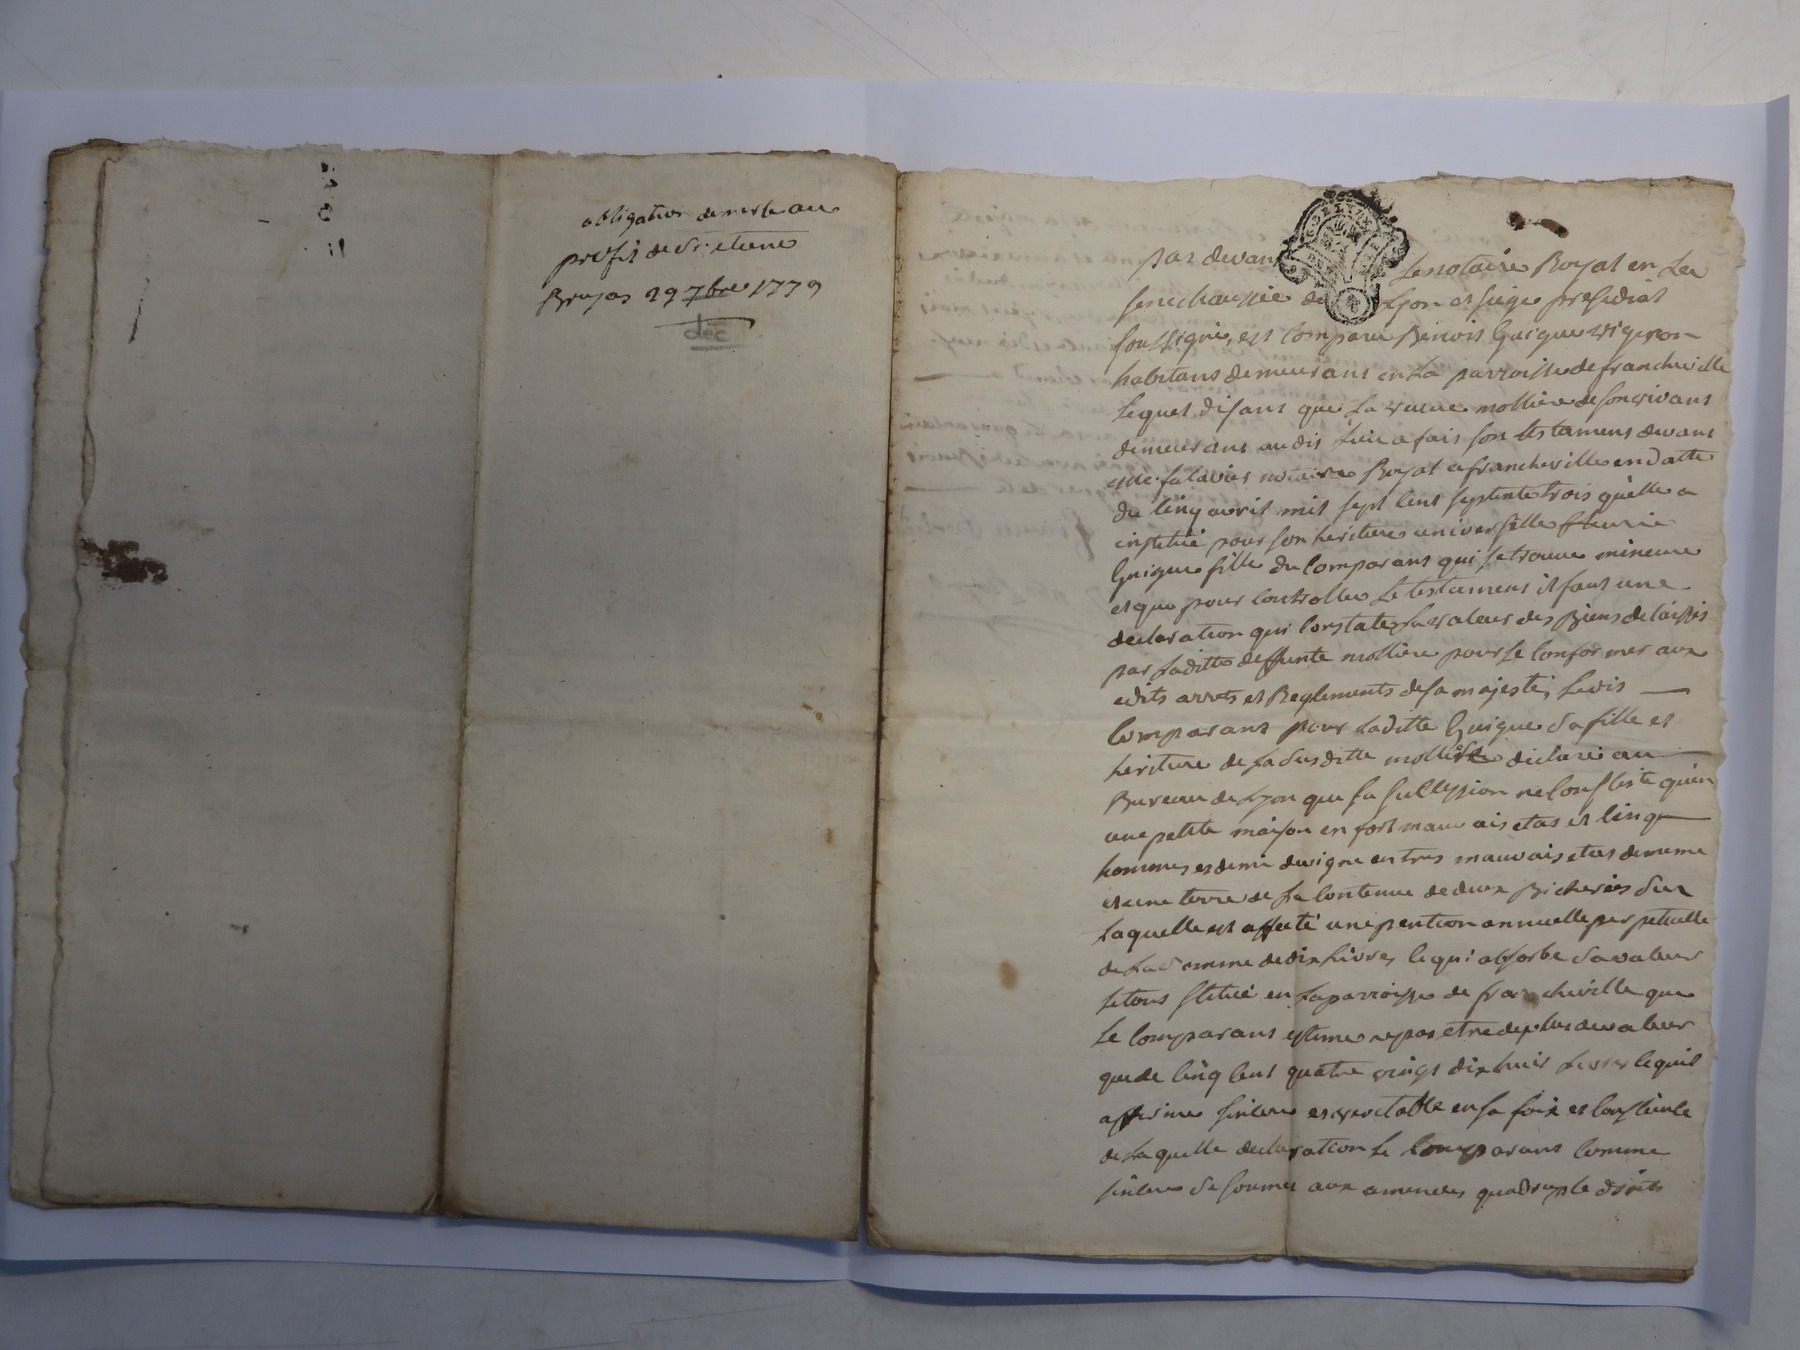 obligation de merle au
profit de Sr. etiene
Brujas 29 7bre 1779
dec
par devant le notaire Royal en la
senechaussée de Lyon et siege presidial
soussigné, est comparu Benoit Guigue vigeron
habitant demeurant en la parroisse de francheville
lequel disant que la veuve mollière de son vivant
demeurant audit lieu a fait son testament devant
me. falavier notaire Royal a francheville en datte
du cinq avril mil sept cent septente trois quelle a
institué pour son heritiere universelle fleurie
Guigue fille du comparant qui se trouve mineure
et que pour controller le testament il faut une
declaration qui constate la valeur des Biens delaissés
par laditte deffunte mollière pour se conformer aux
edits arrets et Reglements de sa majesté, ledit
comparant pour laditte Guigue sa fille et
heritiere de la susditte mollière declare au
Bureau de Lyon que sa succession ne consiste qu'en
une petite maison en fort mauvais etat et cinq
hommes et demi de vigne en tres mauvais etat de meme
et une terre de la contenue de deux Bicherées sur
laquelle est affecté une pention annuelle perpetuelle
de la somme de dix livres ce qui absorbe sa valeur
le tout situé en la parroisse de francheville que
le comparant estime ne pas etre de plus de valeur
que de cinq cent quatre vingt dix huit livres ce quil
affirme sincere et veritable en sa foix et consience
de laquelle declaration le comparant comme
sincere se soumet aux amendes quadruple droits